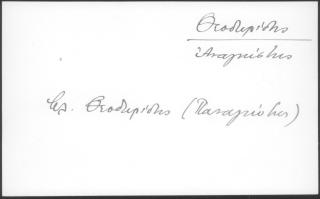 Θεοδωρίδης
Παναγιώτης
βλ. Θεοδωρίδης (Παναγιώτης)